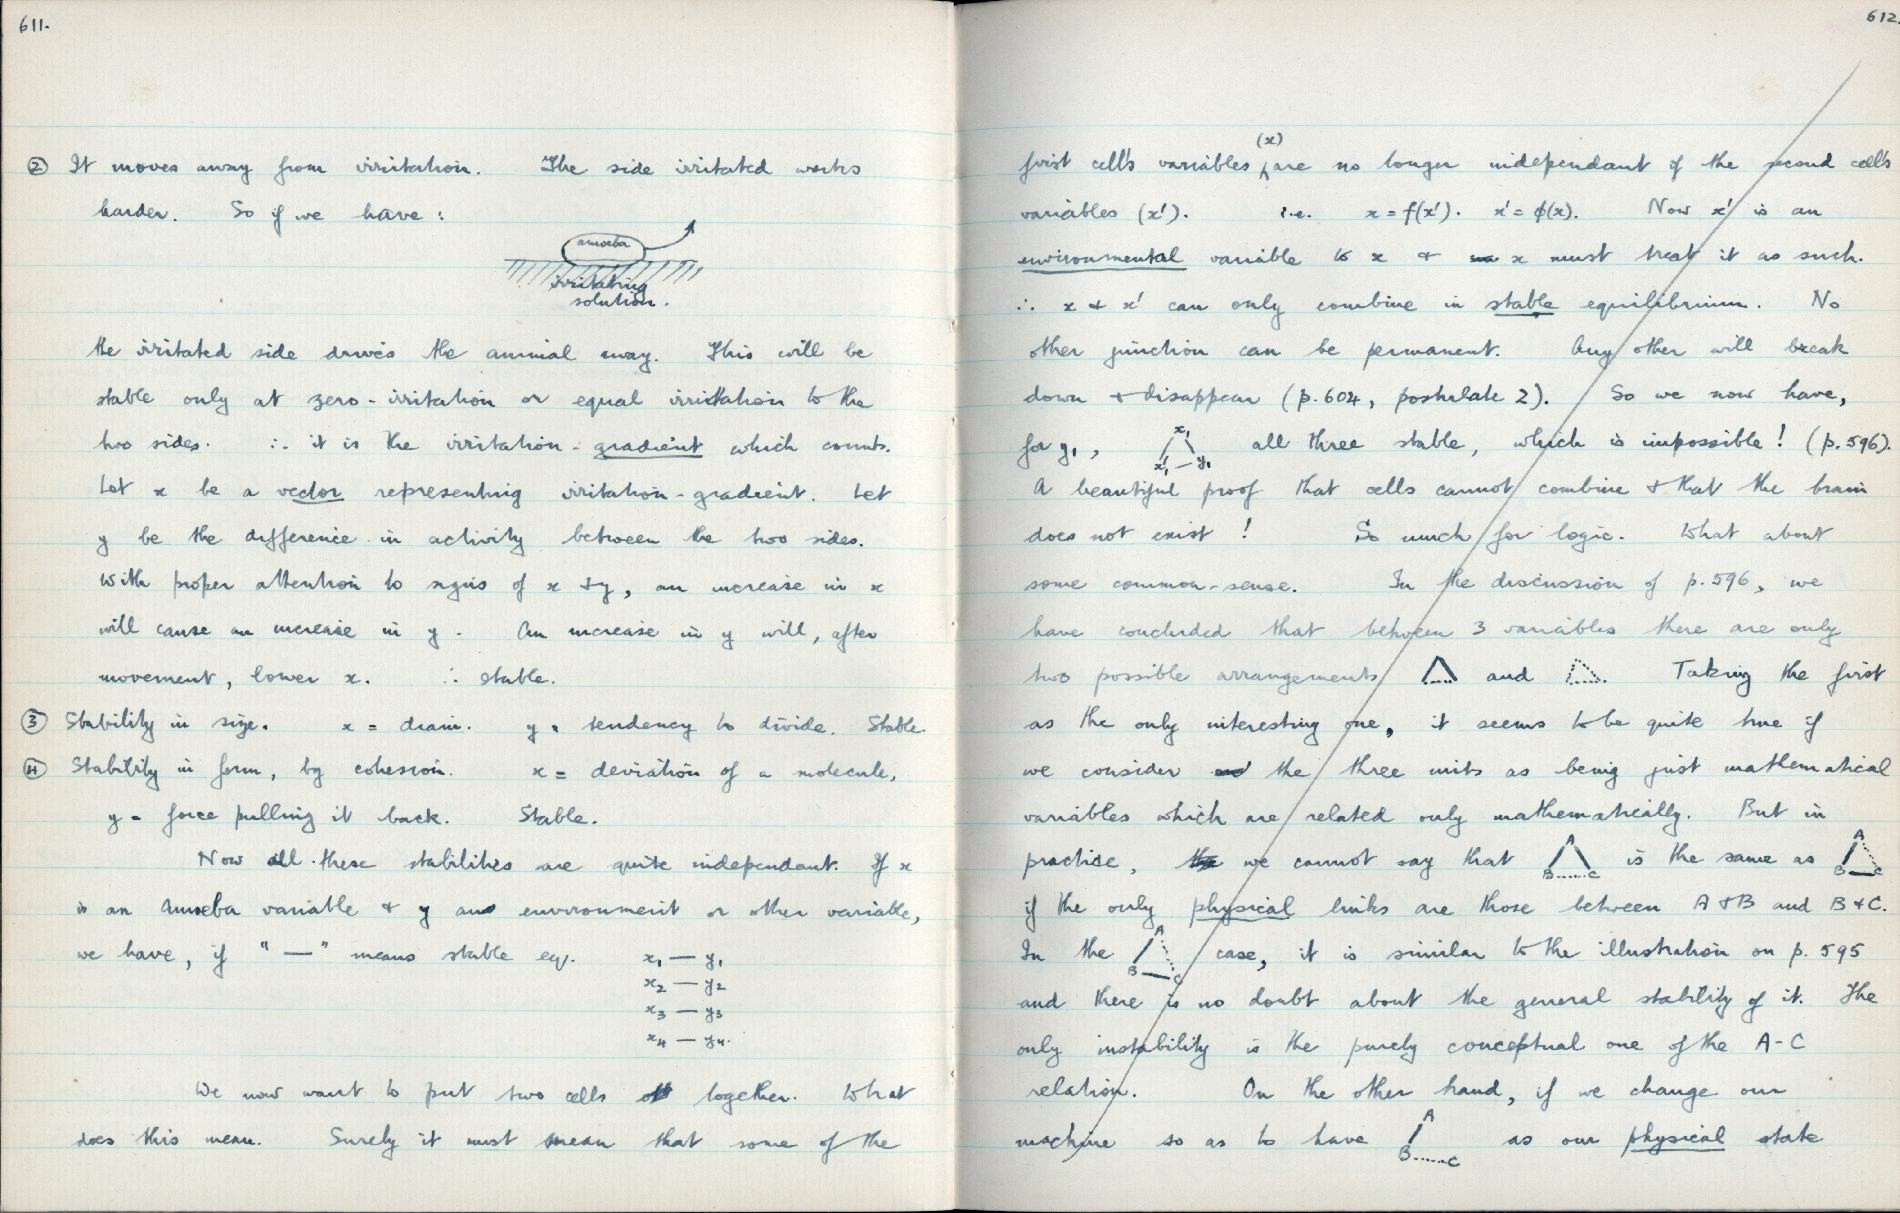 611.
② It moves away from irritation. The side irritated works
harder. So if we have :
amoeba
irritating
solution.
the irritated side drives the animal away. This will be
stable only at zero-irritation or equal irritation to the
two sides. ∴ it is the irritation-gradient which counts.
Let x be a vector representing irritation-gradient. Let
y be the difference in activity between the two sides.
With proper attention to signs of x & y, an increase in x
will cause an increase in y. An increase in y will, after
movement, lower x. ∴ stable.
③ Stability in size. x = diam. y = tendency to divide. Stable.
④ Stability in form, by cohesion. x = deviation of a molecule,
y = force pulling it back. Stable.
Now all these stabilities are quite independant. If x
is an Amoeba variable & y an environment or other variable,
we have, if "—" means stable eq.
x₁ — y₁
x₂ — y₂
x₃ — y₃
x₄ — y₄.
We now want to put two cells together. What
does this mean. Surely it must mean that some of the
612.
first cell's variables (x) are no longer independant of the second cell's
variables (x'). i.e. x = f(x'). x' = φ(x). Now x' is an
environmental variable to x & x must treat it as such.
∴ x & x' can only combine in stable equilibrium. No
other junction can be permanent. Any other will break
down & disappear (p.604, postulate 2). So we now have,
for y₁, x₁ x'₁ — y₁ all three stable, which is impossible! (p.596).
A beautiful proof that cells cannot combine & that the brain
does not exist ! So much for logic. What about
some common-sense. In the discussion of p.596, we
have concluded that between 3 variables there are only
two possible arrangements and Taking the first
as the only interesting one, it seems to be quite true if
we consider the three units as being just mathematical
variables which are related only mathematically. But in
practice, we cannot say that A B C is the same as A B C
if the only physical links are those between A & B and B & C.
In the A B C case, it is similar to the illustration on p. 595
and there is no doubt about the general stability of it. The
only instability is the purely conceptual one of the A-C
relation. On the other hand, if we change our
machine so as to have A B C as our physical state